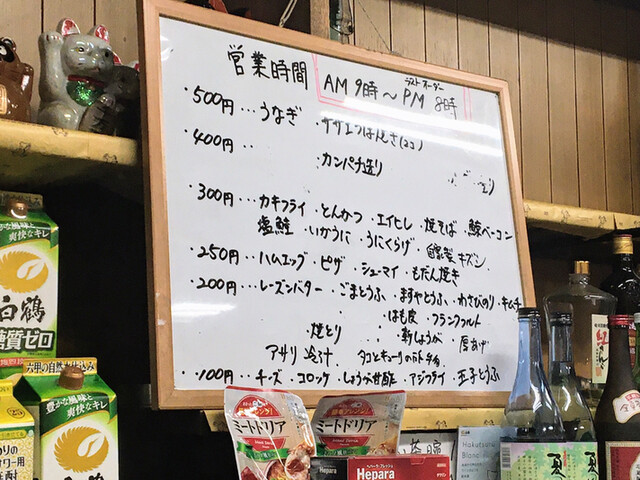 営業時間
ラストオーダー
AM 9時～PM 8時
・500円…うなぎ ・サザエつぼ焼き(2コ)
・400円‥ ・カンパチ造り
・300円…カキフライ・とんかつ・エイヒレ・焼そば・鯨ベーコン
塩鮭・いかうに・うにくらげ・自家製キズシ
・250円…ハムエッグ・ピザ・シューマイ・もだん焼き
・200円…レーズンバター・ごまとうふ・ますやとうふ・わさびのり・キムチ
・はも皮・フランクフルト
焼とり・新しょうが・厚あげ
アサリ汁
・100円…チーズ・コロッケ・しょうが甘酢・アジフライ・玉子とうふ
豊かな風味と
爽快なキレ
白鶴
糖質ゼロ
六甲の自然が仕込み
豊かな風味と
爽快なキレ
ミートドリア
ミートドリア
Hepara
Hepara
Hakutsuru
Blanc